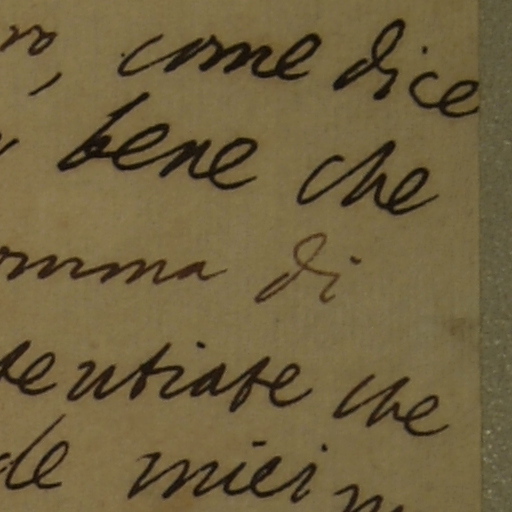 , come dice
bene che
omma di
tentiate che
de miei